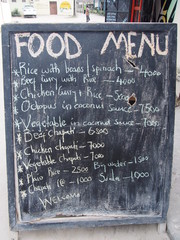 FOOD MENU
* Rice with beans / spinach - 4000
* Beef curry with Rice - 4000
* Chicken curry & Rice - 5000
* Octopus in coconut sauce - 7500
* Vegetable in coconut sauce - 7000
* Beef chapati - 6500
* Chicken chapati - 7000
* Vegetable chapati - 7000
* Plain Rice - 2500 Big water - 1500
* Chapati 1@ - 1000 Soda - 1000
Welcome